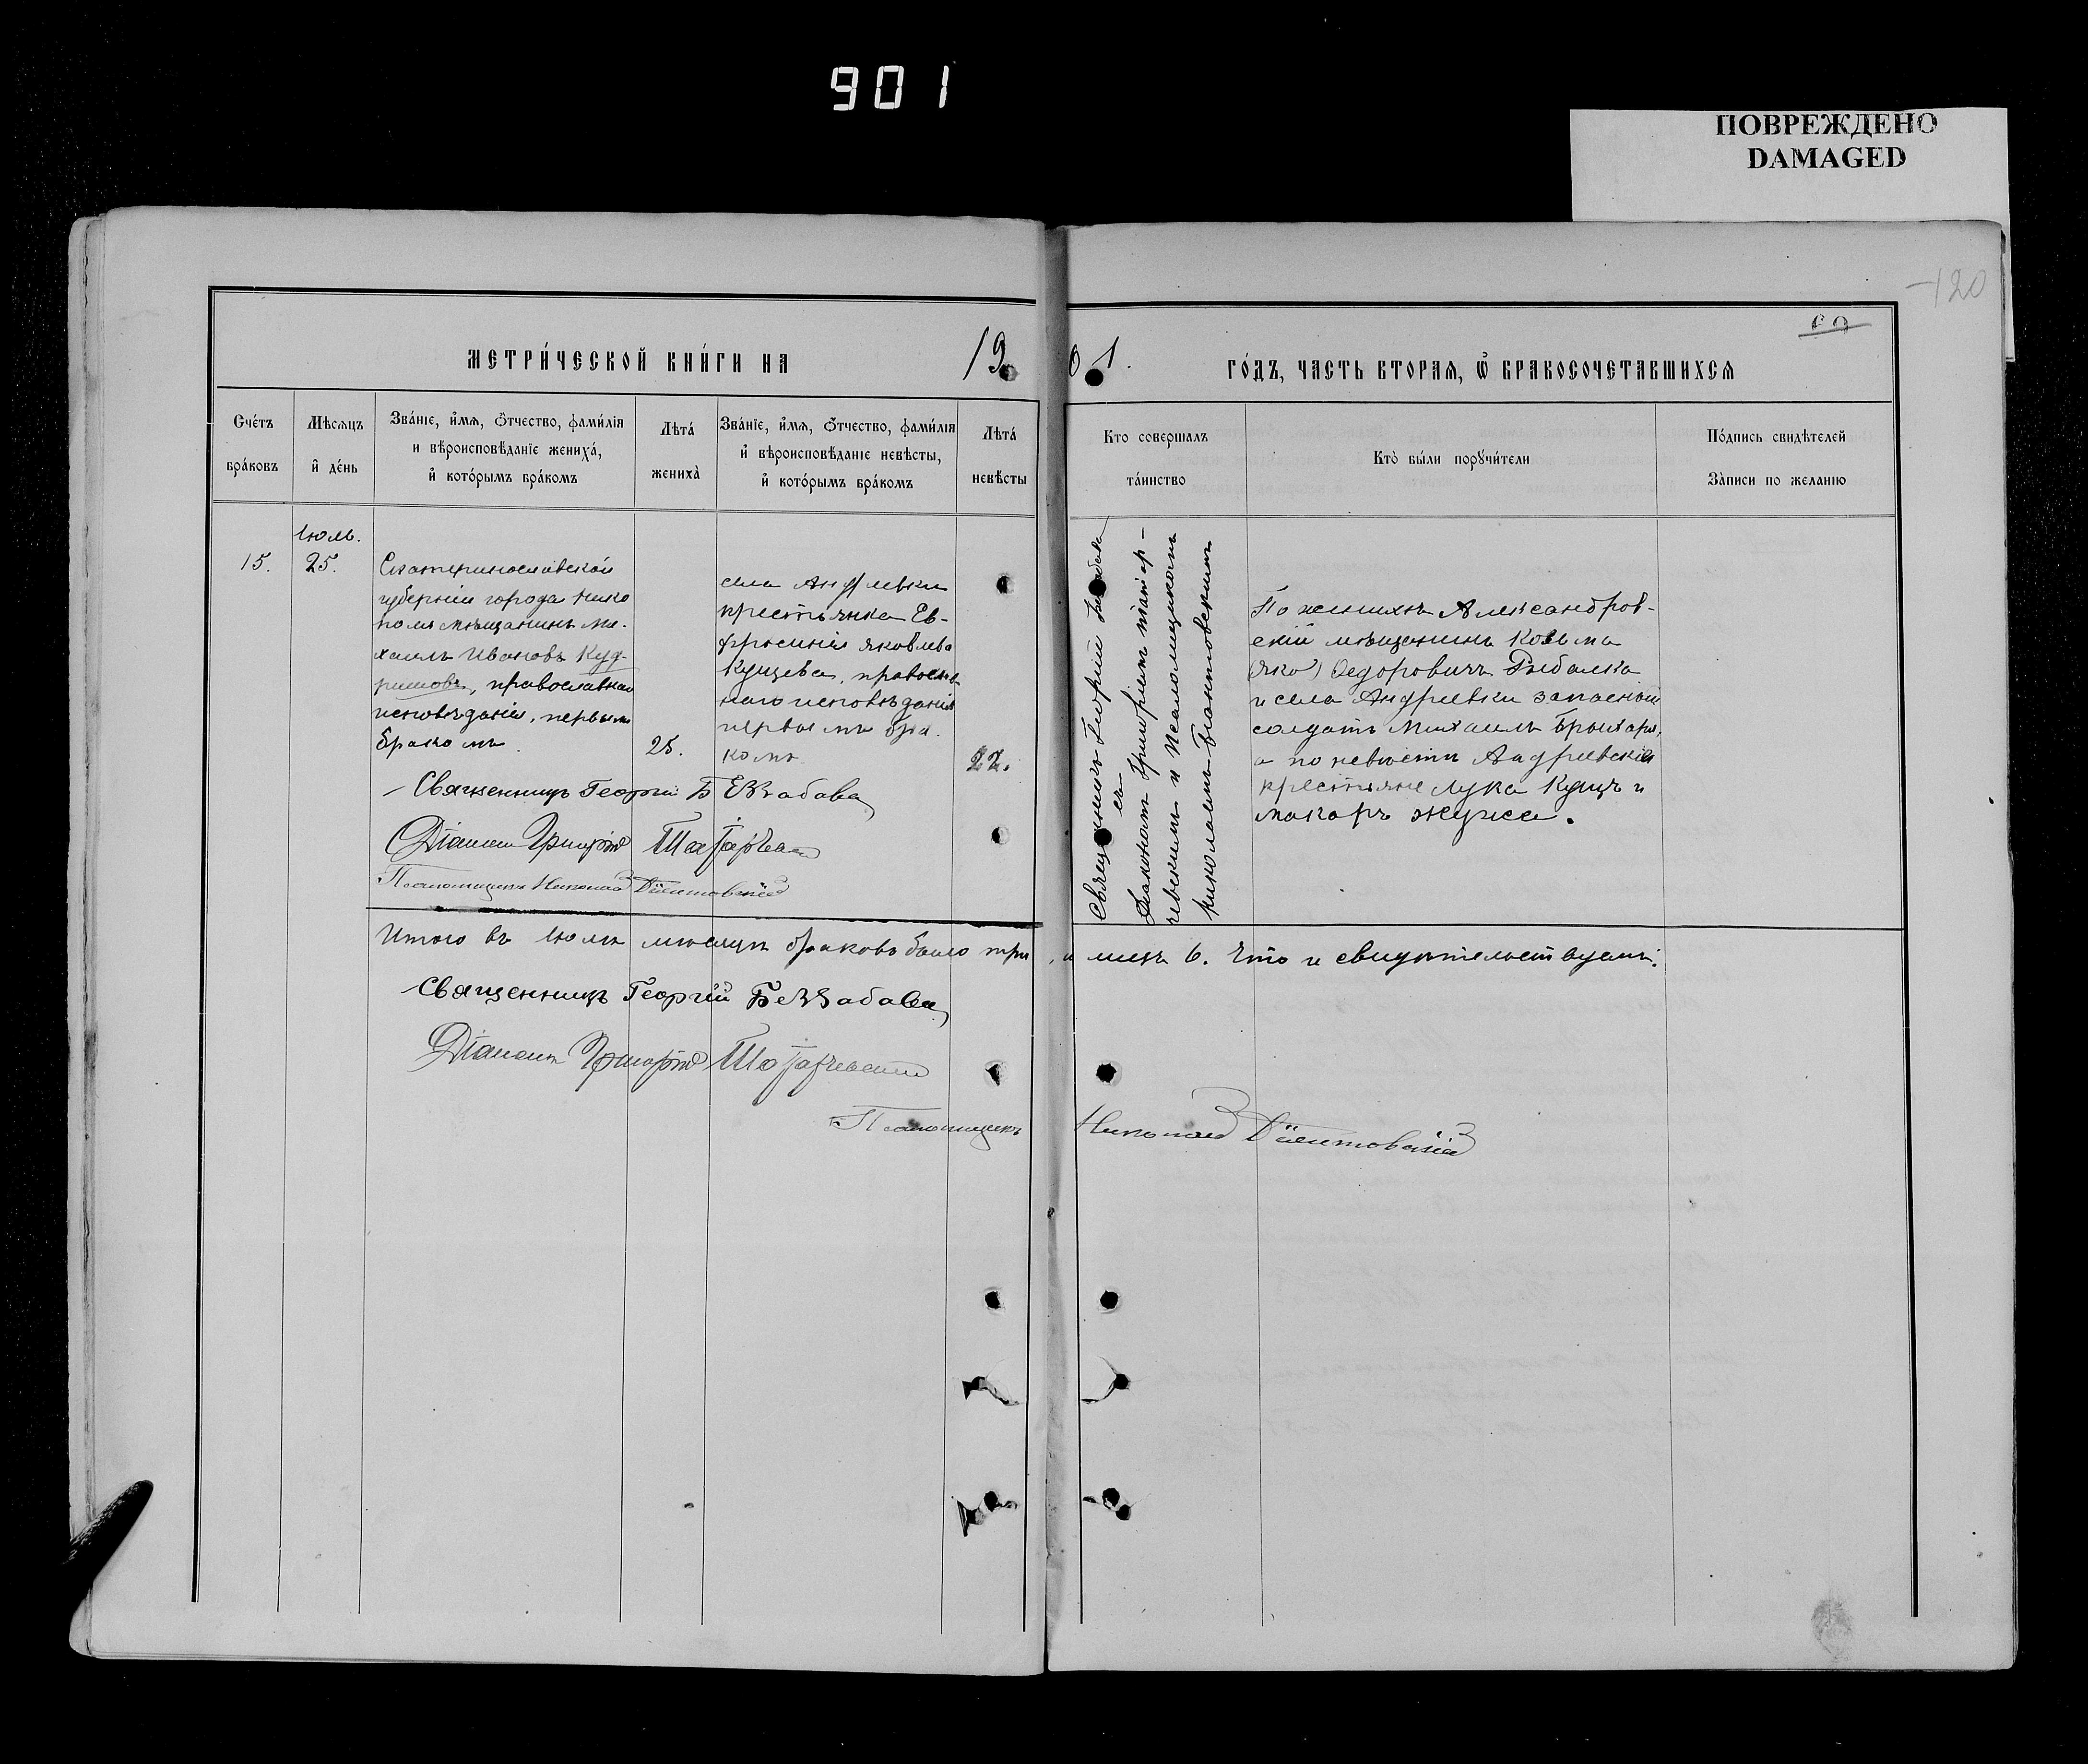 901
ПОВРЕЖДЕНО
DAMAGED
120
МЕТРИ́ЧЕСКОЙ КНИ́ГИ НА 1901. ГО́ДЪ, ЧАСТЬ ВТОРАѦ, Ѽ БРАКОСОЧЕТАВШИХСѦ
Сче́тъ бра́ковъ
Мѣсѧцъ и҆ де́нь
Зва́нїе, и҆́мѧ, ѻ҆́тчество, фами́лїѧ
и вѣроисповѣ́данїе жениха̀,
и҆ кото́рымъ бра́комъ
Лѣта́ жениха̀
Зва́нїе, и҆́мѧ, ѻ҆́тчество, фами́лїѧ
и҆ вѣроисповѣ́данїе невѣ́сты,
и҆ кото́рымъ бра́комъ
Лѣта́ невѣ́сты
Кто совершалъ
та́инство
Кто̀ бы́ли порꙋчи́тели
По́дпись свидѣ́телей
За̀писи по желанїю
Іюль.
15. 25.
Екатеринославской
губерніи города Нико
поля мѣщанинъ Ми-
хаилъ Ивановъ Куд-
ряшовъ, православнаго
исповѣданія, первымъ
бракомъ.
25.
села Андреевки
крестьянка Ев-
фросинія Яковлева
Кущева, православ
наго исповѣданія
первымъ бра-
комъ
22.
Священникъ Георгій Беззабава
съ
Діакономъ Григоріемъ Татар-
чевскимъ и Псаломщикомъ
Николаемъ
По женихѣ Александров-
скій мѣщанинъ Козьма
(Яко) Ѳедоровичъ Рыбалка
и села Андреевки запасный
солдатъ Михаилъ
а по невѣстѣ Андреевскіе
крестьяне Лука Кущъ и
Макаръ Жужа.
Священникъ Георгій Беззабава
Діаконъ Григорій Татарчевскій
Псаломщикъ Николай
Итого въ Іюлѣ мѣсяцѣ браковъ было три, а лицъ 6. Что и свидѣтельствуемъ:
Священникъ Георгій Беззабава
Діаконъ Григорій Татарчевскій
Псаломщикъ Николай